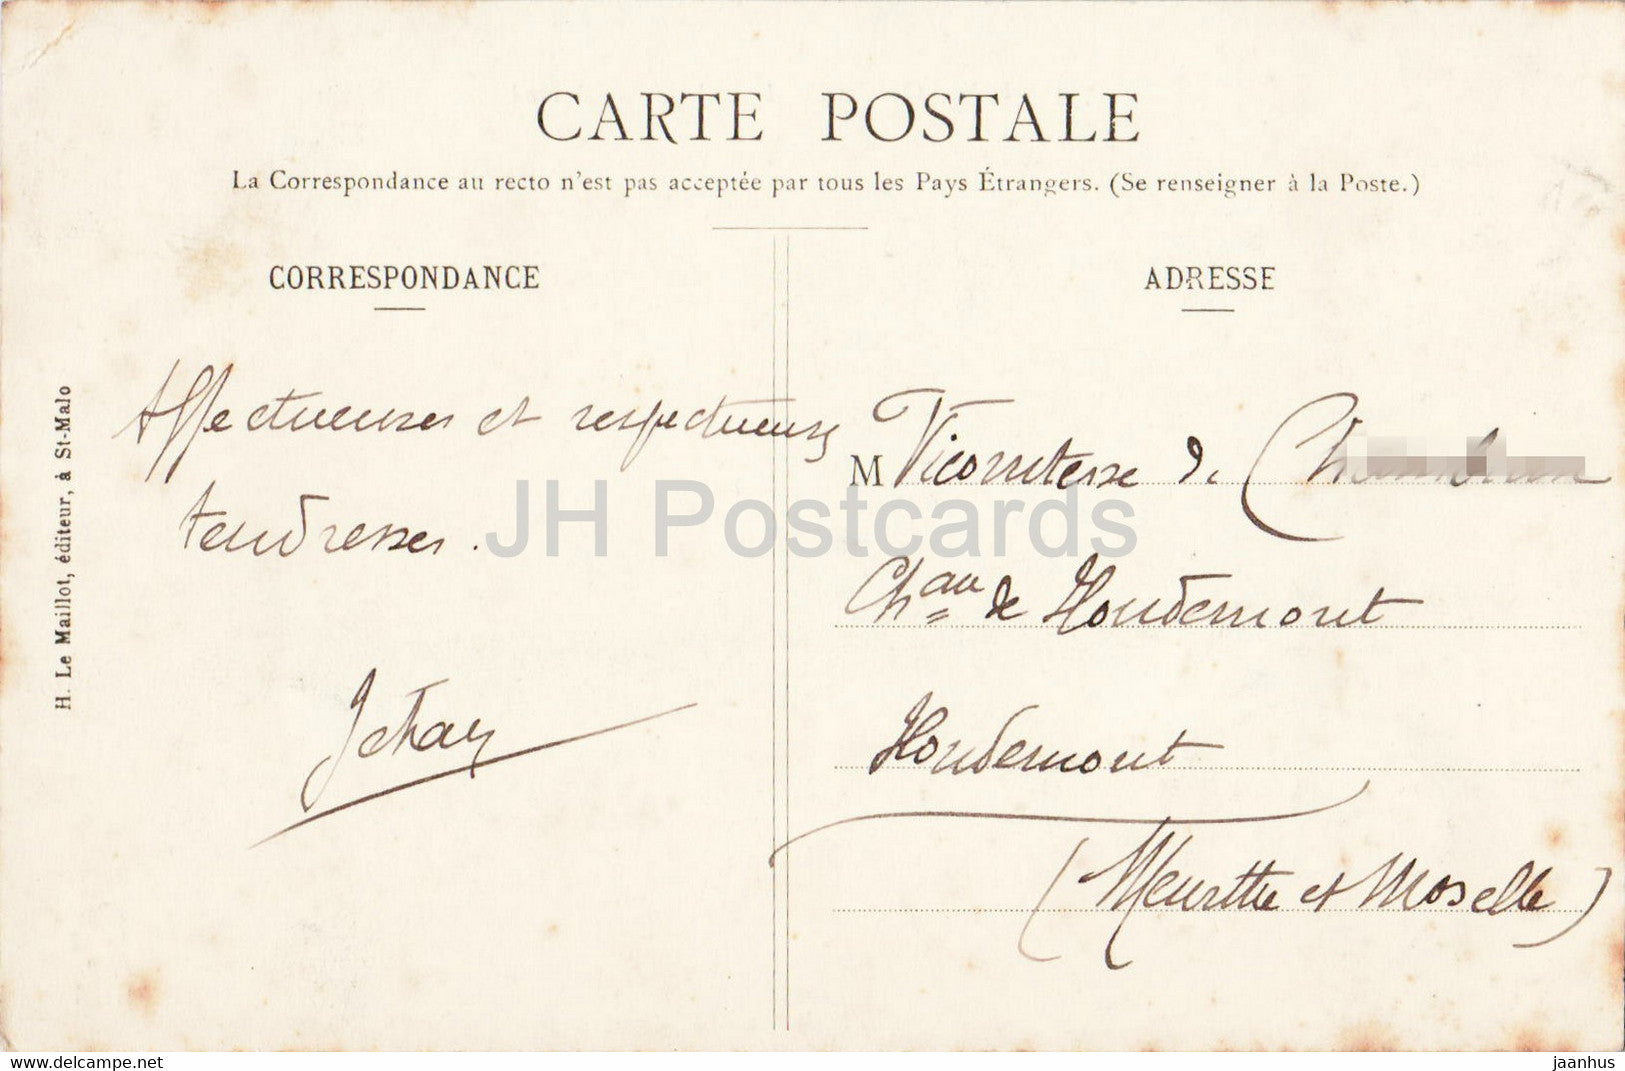 CARTE POSTALE
La Correspondance au recto n'est pas acceptée par tous les Pays Étrangers. (Se renseigner à la Poste.)
CORRESPONDANCE
Affectueuses et respectueuses
tendresses.
Jehan
H. Le Maillot, éditeur, à St-Malo
ADRESSE
M Vicomtesse de
Chau de Houdemont
Houdemont
(Meurthe et Moselle)
JH Postcards
www.delcampe.net
jaanhus